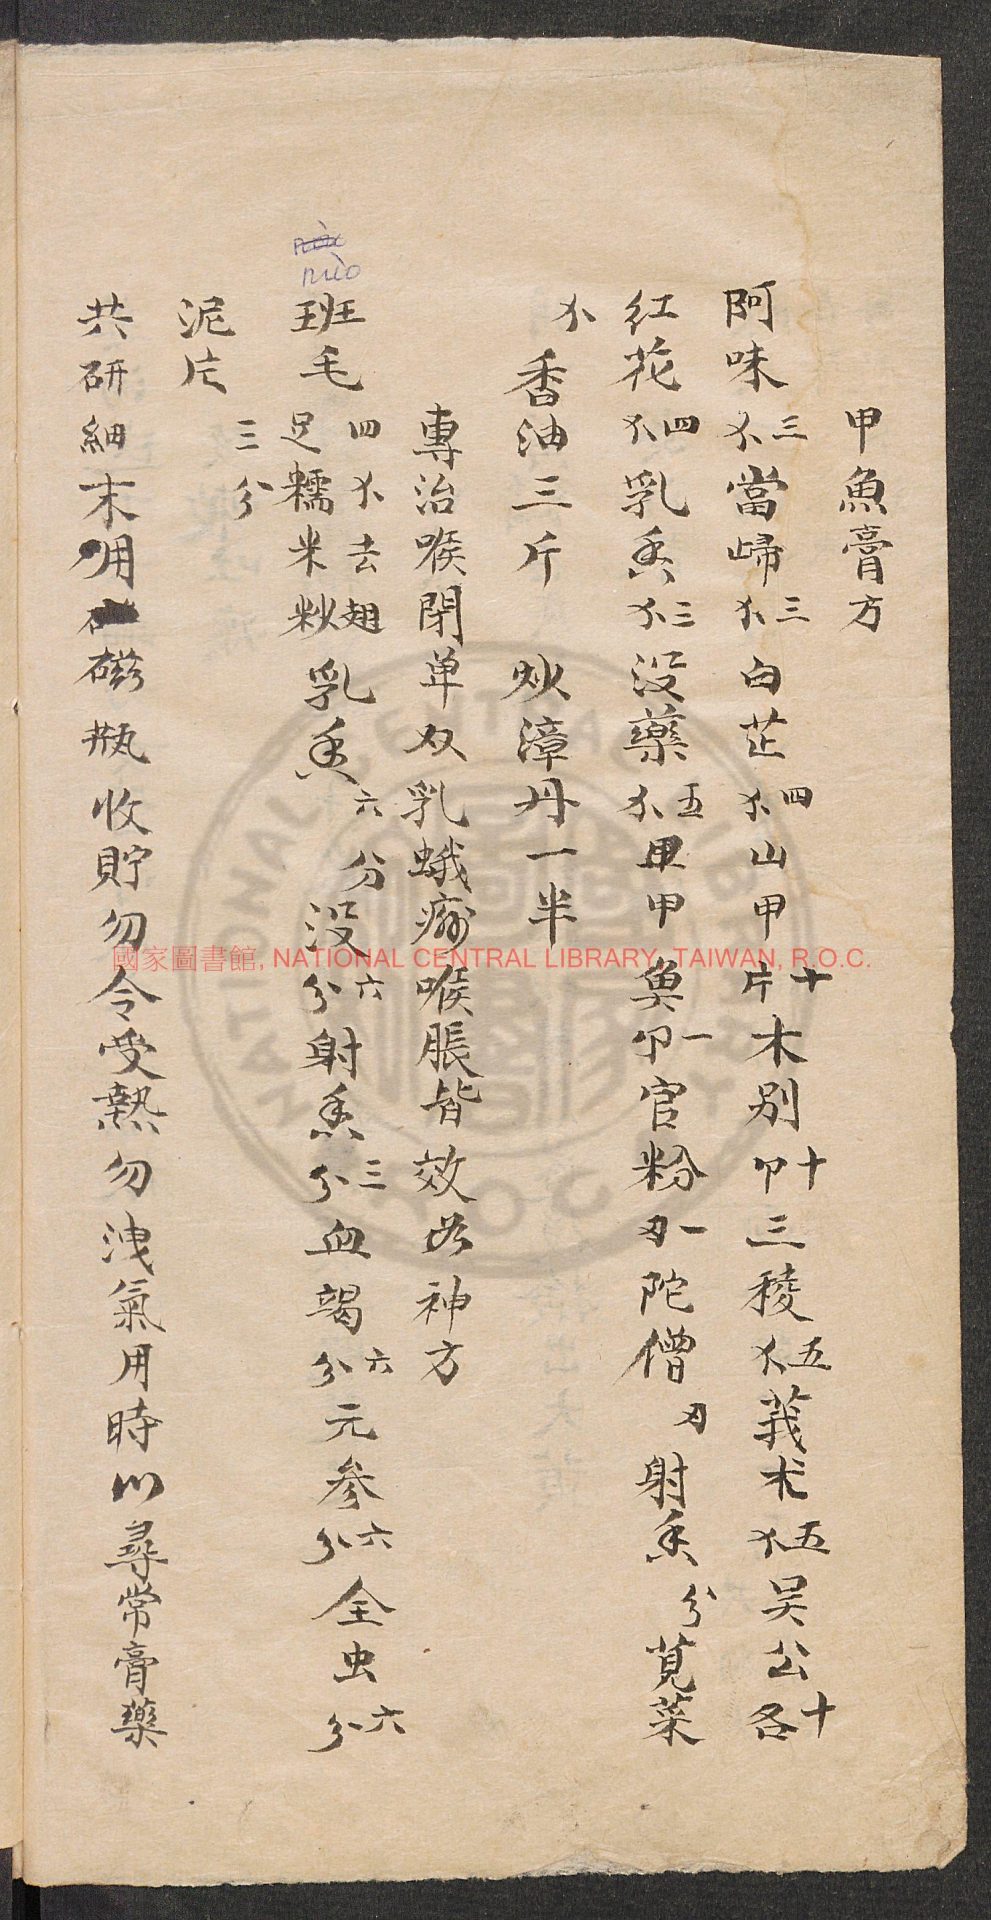 甲魚膏方
阿味三不當歸三不白芷四不山甲十片木别十卩三稜五不莪朮五不吴公十各
红花四不乳香三不没藥五不甲魚一卩官粉一刃陀僧刃射香分莧菜
不香油三斤 炒漳丹一半
專治喉閉单双乳蛾痧喉脹皆效必神方
班毛四不去翅足糯米炒乳香六分没六分射香三分血竭六分元参六分全虫六分
泥片三分
共研細末用磁瓶收貯勿令受熱勿洩氣用時以尋常膏藥
nuo
國家圖書館, NATIONAL CENTRAL LIBRARY, TAIWAN, R.O.C.